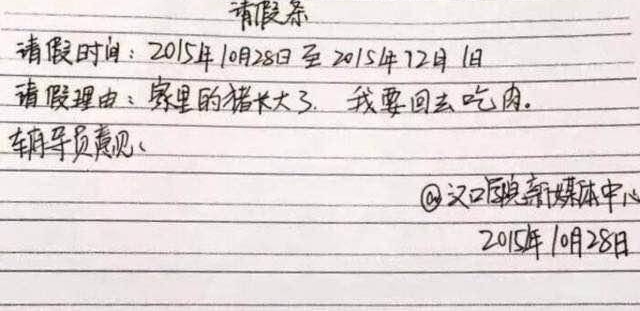 请假条
请假时间：2015年10月28日至2015年12月1日
请假理由：家里的猪长大了. 我要回去吃肉。
辅导员意见、
@汉口学院新媒体中心
2015年10月28日